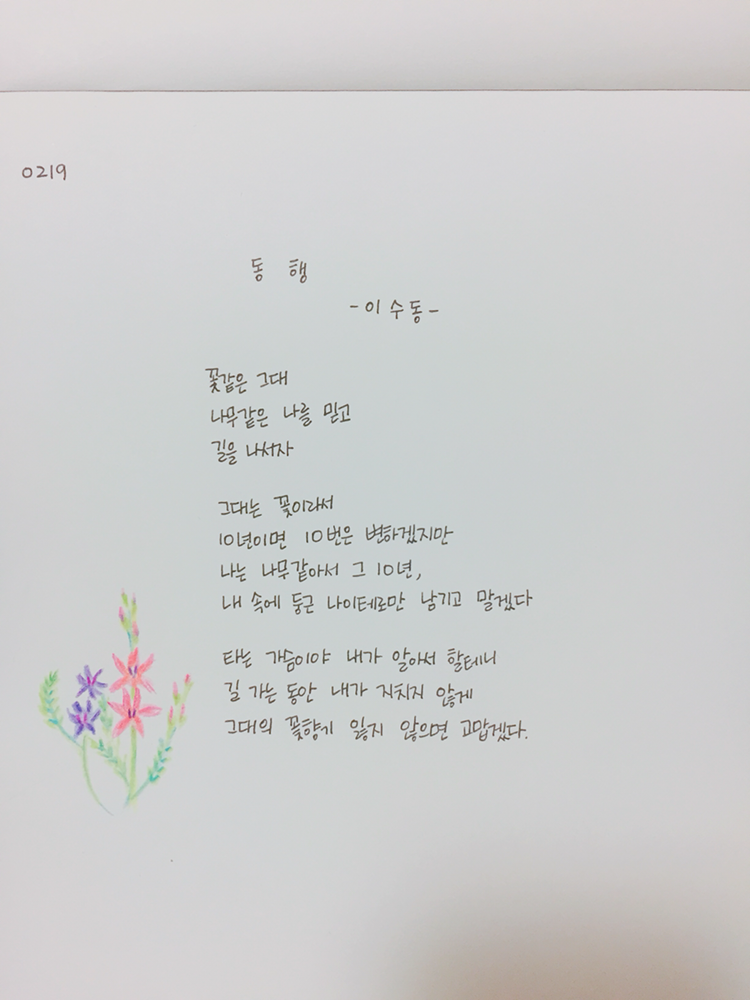 0219
동 행
-이수동-
꽃같은 그대
나무같은 나를 믿고
길을 나서자
그대는 꽃이라서
10년이면 10번은 변하겠지만
나는 나무같아서 그 10년,
내 속에 둥근 나이테로만 남기고 말겠다
타는 가슴이야 내가 알아서 할테니
길 가는 동안 내가 지치지 않게
그대의 꽃향기 잃지 않으면 고맙겠다.